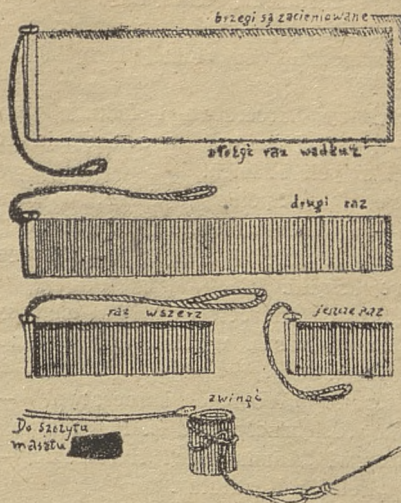 brzegi są zacieniowane
złożyć raz wzdłuż
drugi raz
raz wszerz
jeszcze raz
zwinąć
Do szczytu
masztu